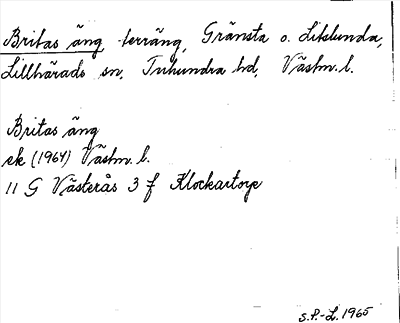 Britas äng terräng, Gränsta o. Litslunda,
Lillhärads sn, Tuhundra hd, Västm. l.
Britas äng
ek (1964) Västm. l.
11 G Västerås 3 f Klockartorp
S.P.-L. 1965